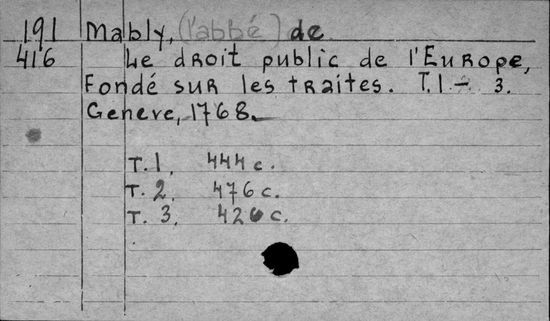 191 Mably, (l'abbé) de
416 Le droit public de l'Europe,
Fondé sur les traites. T.1 - 3.
Geneve, 1768.
T. 1. 444 c.
T. 2. 476 c.
T. 3. 426 c.